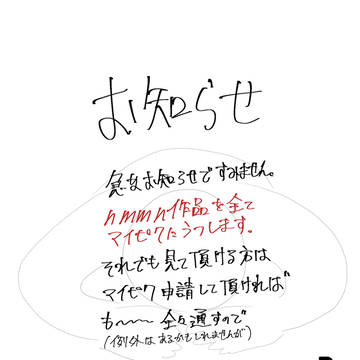 お知らせ
急なお知らせですみません。
nmmn作品を全て
マイピクにうつします。
それでも見て頂ける方は
マイピク申請して頂ければ
も〜〜全々通すので
(例外はあるかもしれませんが)